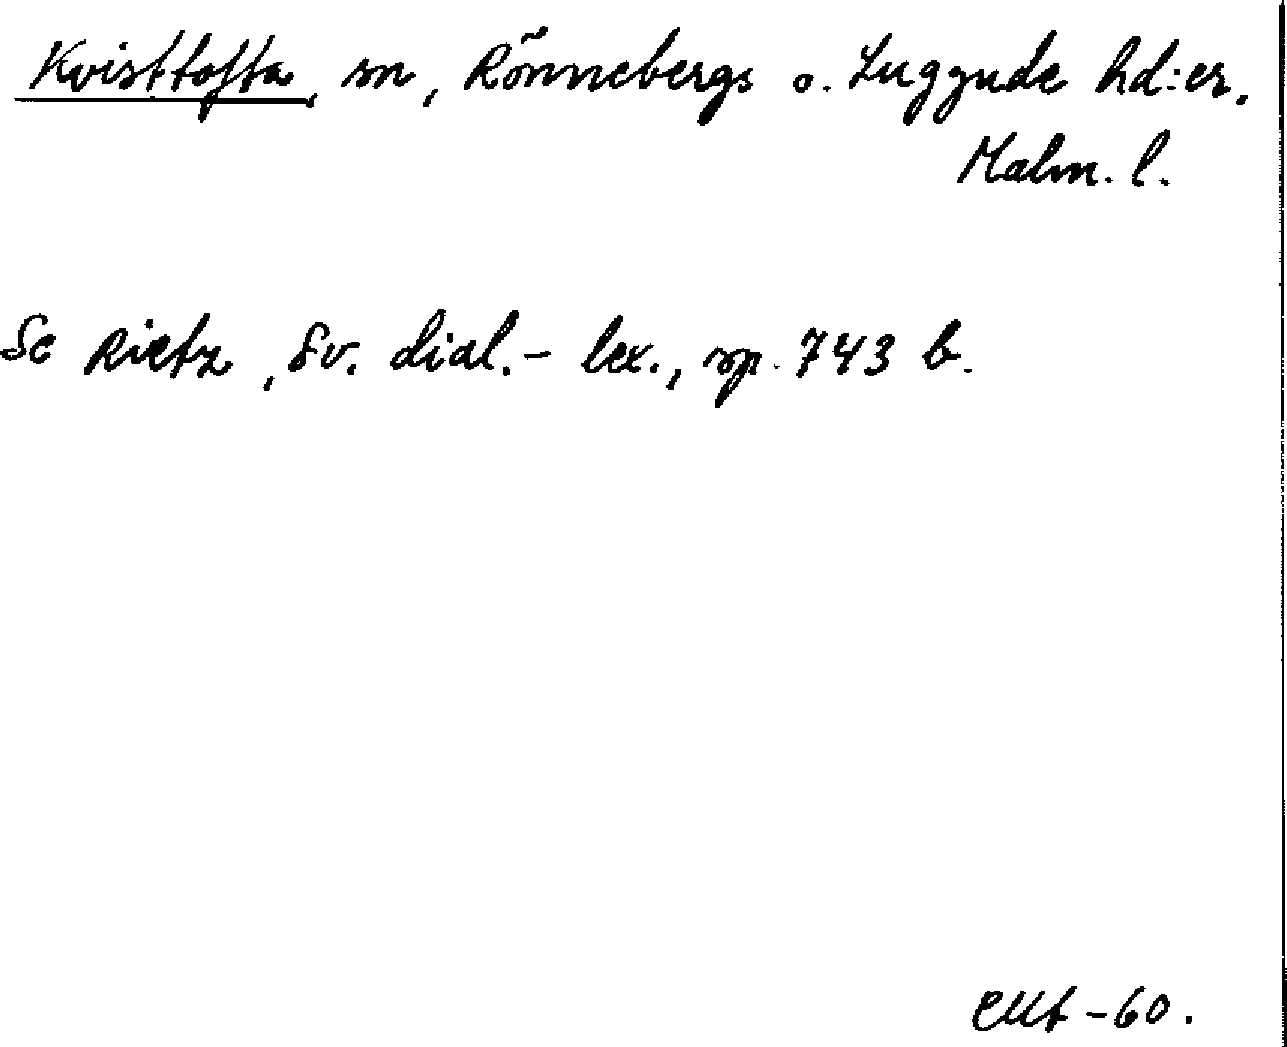 Kvisttofta, sn, Rönnebergs o. Luggude hd:er.
Malm. l.
Se Rietz, Sv. dial.-lex., sp. 743 b.
-60.